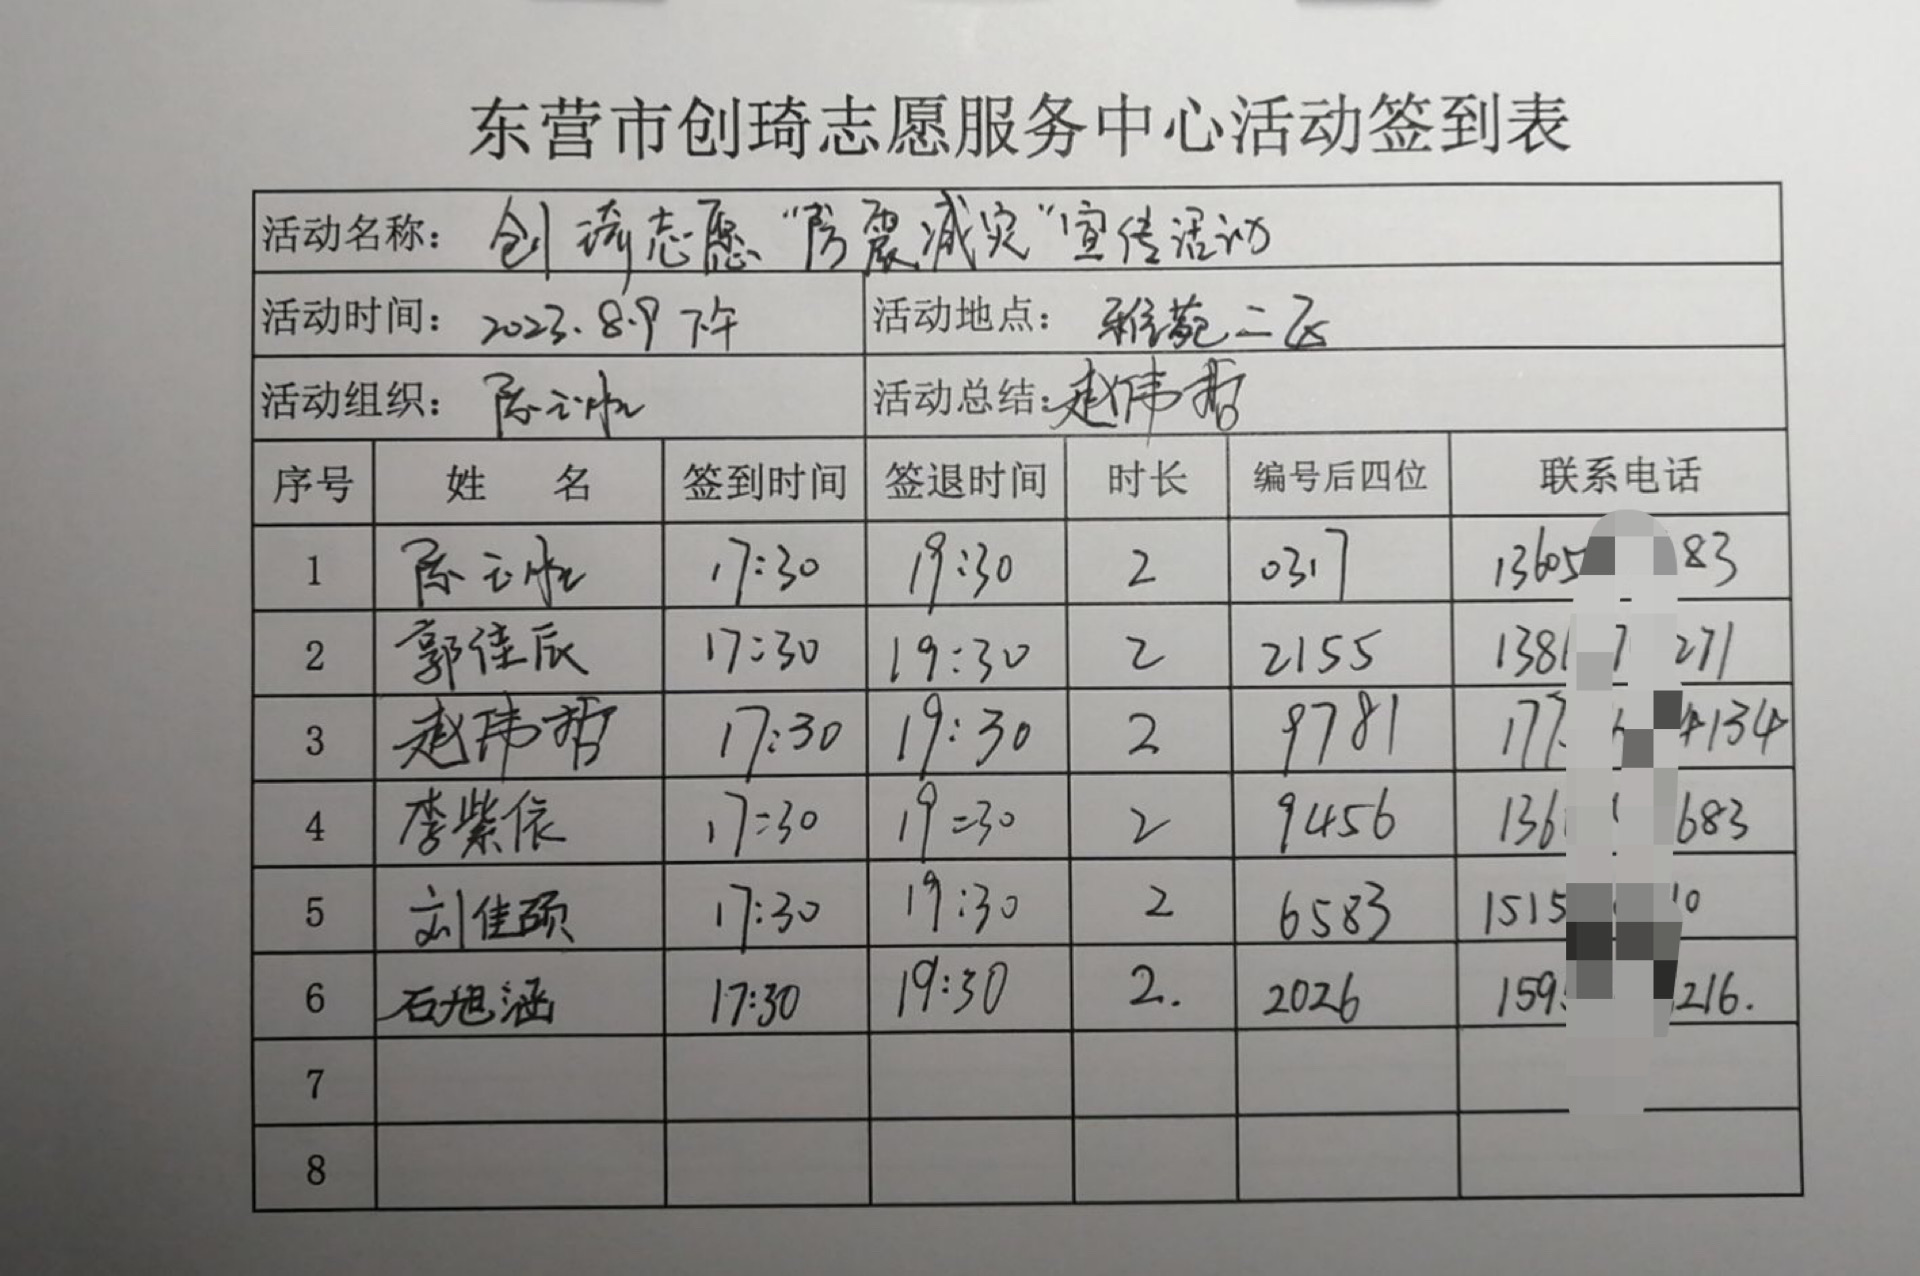 东营市创琦志愿服务中心活动签到表
活动名称： 创琦志愿“防震减灾”宣传活动
活动时间： 2023.8.9 下午 活动地点： 雅苑二区
活动组织： 陈 活动总结： 赵伟哲
序号 姓 名 签到时间 签退时间 时长 编号后四位 联系电话
1 陈 17:30 19:30 2 0317 13605 83
2 郭佳辰 17:30 19:30 2 2155 138 271
3 赵伟哲 17:30 19:30 2 9781 177 4134
4 李紫依 17:30 19:30 2 9456 136 683
5 刘佳硕 17:30 19:30 2 6583 1515 10
6 石旭涵 17:30 19:30 2. 2026 159 216.
7
8